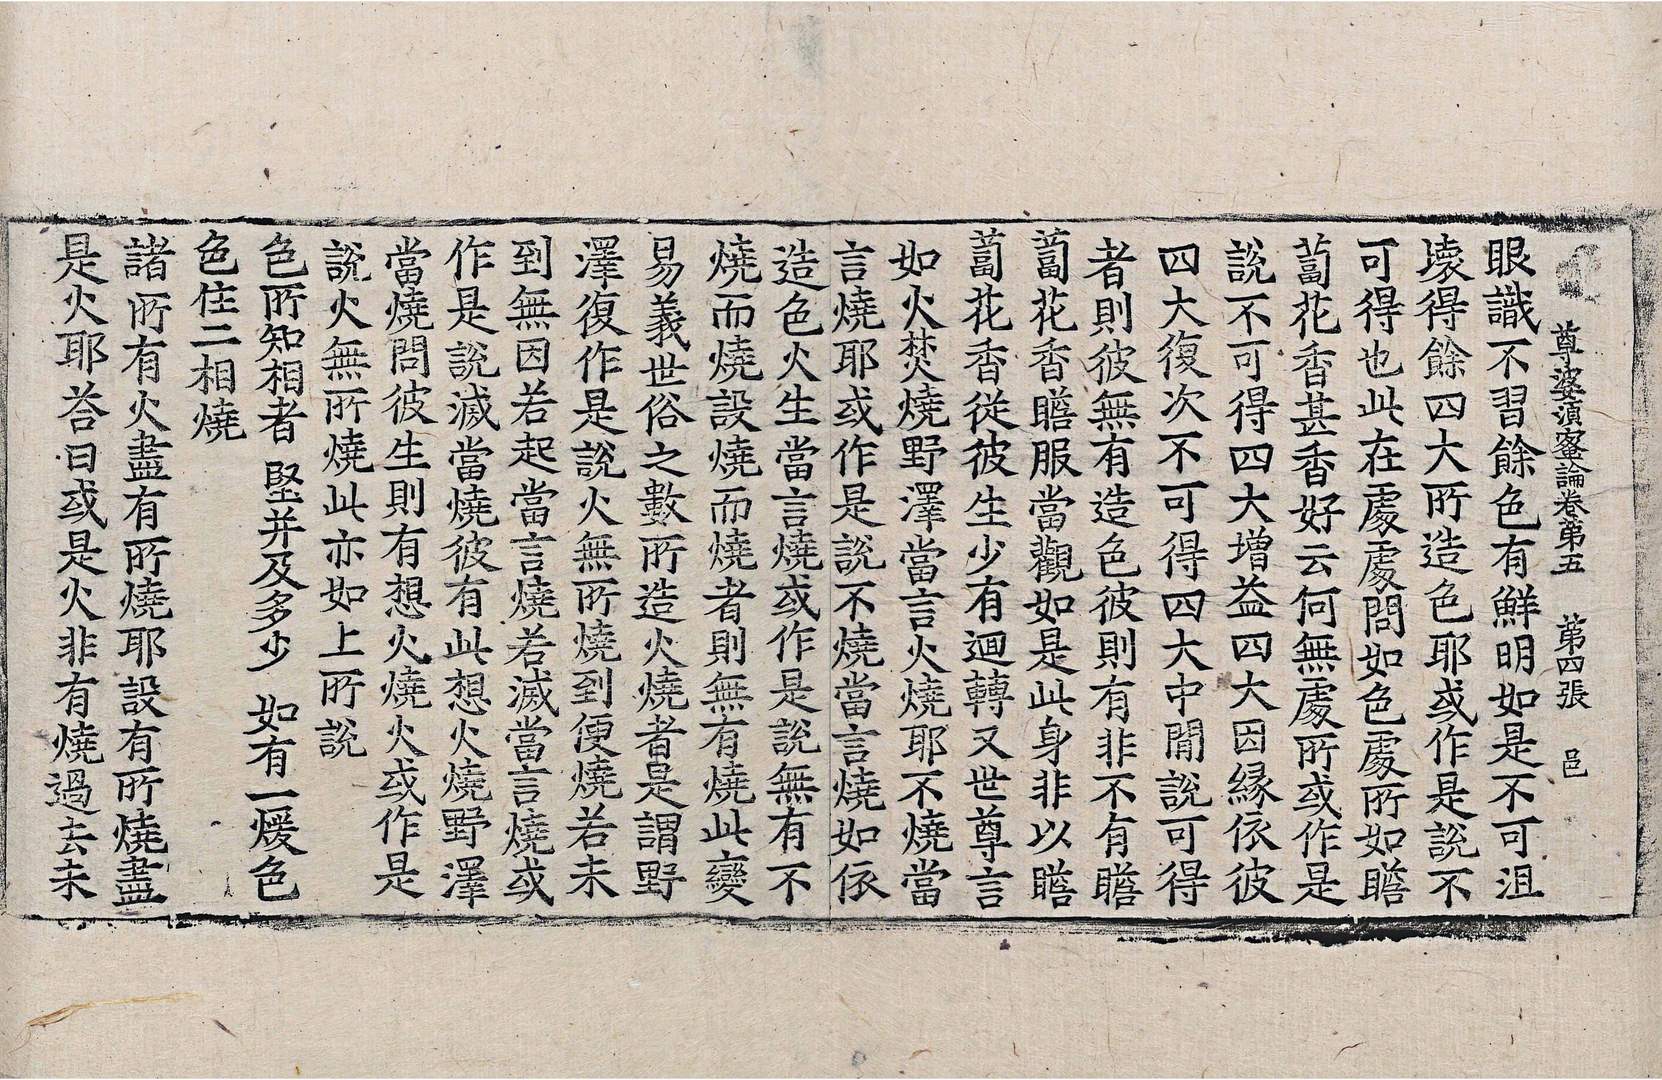 尊婆湏蜜論卷第五　第四張　邑
眼識不習餘色有鮮明如是不可沮
壞得餘四大所造色耶或作是說不
可得也此在處處問如色處所如瞻
蔔花香甚香好云何無處所或作是
說不可得四大增益四大因緣依彼
四大復次不可得四大中閒說可得
者則彼無有造色彼則有非不有瞻
蔔花香瞻服當觀如是此身非以瞻
蔔花香從彼生少有迴轉又世尊言
如火焚燒野澤當言火燒耶不燒當
言燒耶或作是說不燒當言燒如依
造色火生當言燒或作是說無有不
燒而燒設燒而燒者則無有燒此變
易義世俗之數所造火燒者是謂野
澤復作是說火無所燒到便燒若未
到無因若起當言燒若滅當言燒或
作是說滅當燒彼有此想火燒野澤
當燒問彼生則有想火燒火或作是
說火無所燒此亦如上所說
色所知相者　堅并及多少　如有一煖色
色住二相燒
諸所有火盡有所燒耶設有所燒盡
是火耶荅曰或是火非有燒過去未